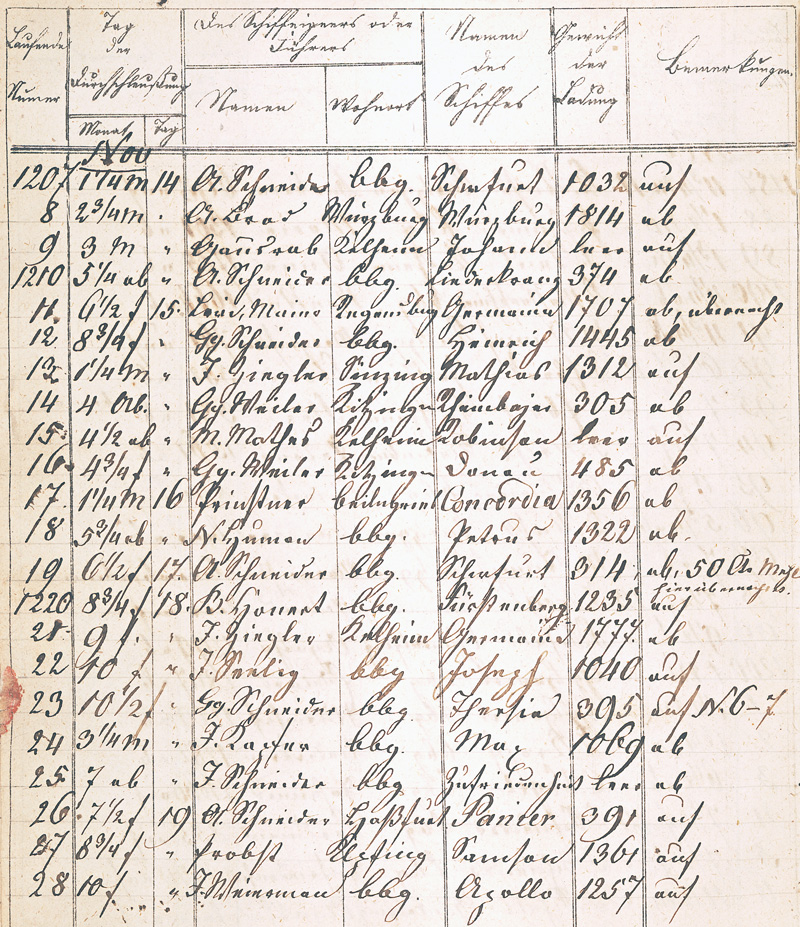 Laufende Numer | Tag der Durchschleußung | Des Schiffseigners oder Führers | Namen des Schiffes | Gewicht der Ladung | Bemerkungen.
Monat | Tag | Namen | Wohnort
Nov
1207 1 1/4 M 14 A. Schneider bbg. Schwfurt 1032 auf
8 2 3/4 M. " A. Brod Würzburg Würzburg 1814 ab
9 3 M " Gausrab Kelheim Johann leer auf
1210 5 1/4 ab " A. Schneider bbg. Liederkranz 374 ab
11. 6 1/2 f 15. Maier Regensbg Germania 1707 ab, übernacht
12. 8 3/4 f " Gg. Schneider bbg. Heinrich 1445 ab
13. 1 1/4 M " J. Ziegler Sinzing Mathias 1312 auf
14 4 Ab. " Gg. Weiler Kitzingen Rheinbajer 305 ab
15. 4 1/2 ab " M. Mathes Kelheim Robinson leer auf
16. 4 3/4 f " Gg. Weiler Kitzingen Donau 485 ab
17. 1 1/4 M 16 Prinstner beilngries Concordia 1356 ab
18 5 3/4 ab " N. Human bbg. Petrus 1322 ab.
19 6 1/2 f 17. A. Schneider bbg. Schwfurt 314, ab, 50
hier übernachts.
1220 8 3/4 f. 18. K. Honert bbg. Fürstenberg 1235 auf
21. 9 f. " J. Ziegler Kelheim Germania 1777. ab
22 10 f " J. Seelig bbg Joseph 1040 auf
23 10 1/2 f " Gg. Schneider bbg Thersia 395 auf N. 6-7
24 3 1/4 M " J. Kapfer bbg. Max 1069 ab
25 7 ab " J. Schneider bbg Zufriedenheit leer ab
26. 7 1/2 f 19 A. Schneider Haßfurt Panier 391 auf
27 8 3/4 f " Probst Samson 1361 auf
28 10 f " J. Weierman bbg. Apollo 1257 auf